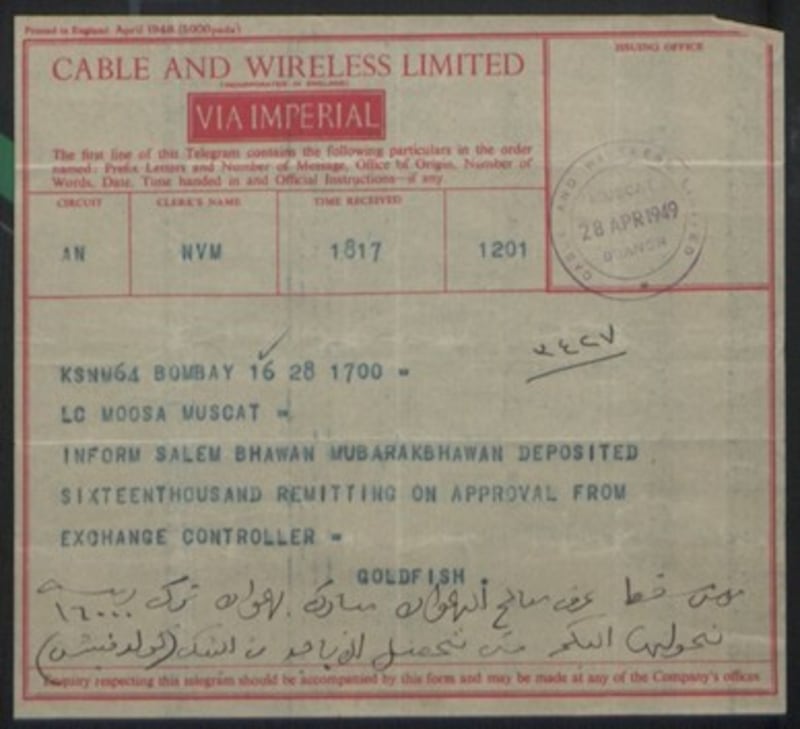 Printed in England April 1948 (5000 pads)
ISSUING OFFICE
CABLE AND WIRELESS LIMITED
(INCORPORATED IN ENGLAND)
VIA IMPERIAL
The first line of this Telegram contains the following particulars in the order
named: Prefix Letters and Number of Message, Office of Origin, Number of
Words, Date, Time handed in and Official Instructions—if any
CIRCUIT CLERK'S NAME TIME RECEIVED
AN NVM 1817 1201
CABLE AND WIRELESS LIMITED
MUSCAT
28 APR 1949
BRANCH
KSNM64 BOMBAY 16 28 1700 =
LC MOOSA MUSCAT =
INFORM SALEM BHAWAN MUBARAKBHAWAN DEPOSITED
SIXTEENTHOUSAND REMITTING ON APPROVAL FROM
EXCHANGE CONTROLLER =
GOLDFISH .
عرف سالم بهوان مبارك بهوان ترك
١٦٠٠٠
Enquiry respecting this telegram should be accompanied by this form and may be made at any of the Company's offices